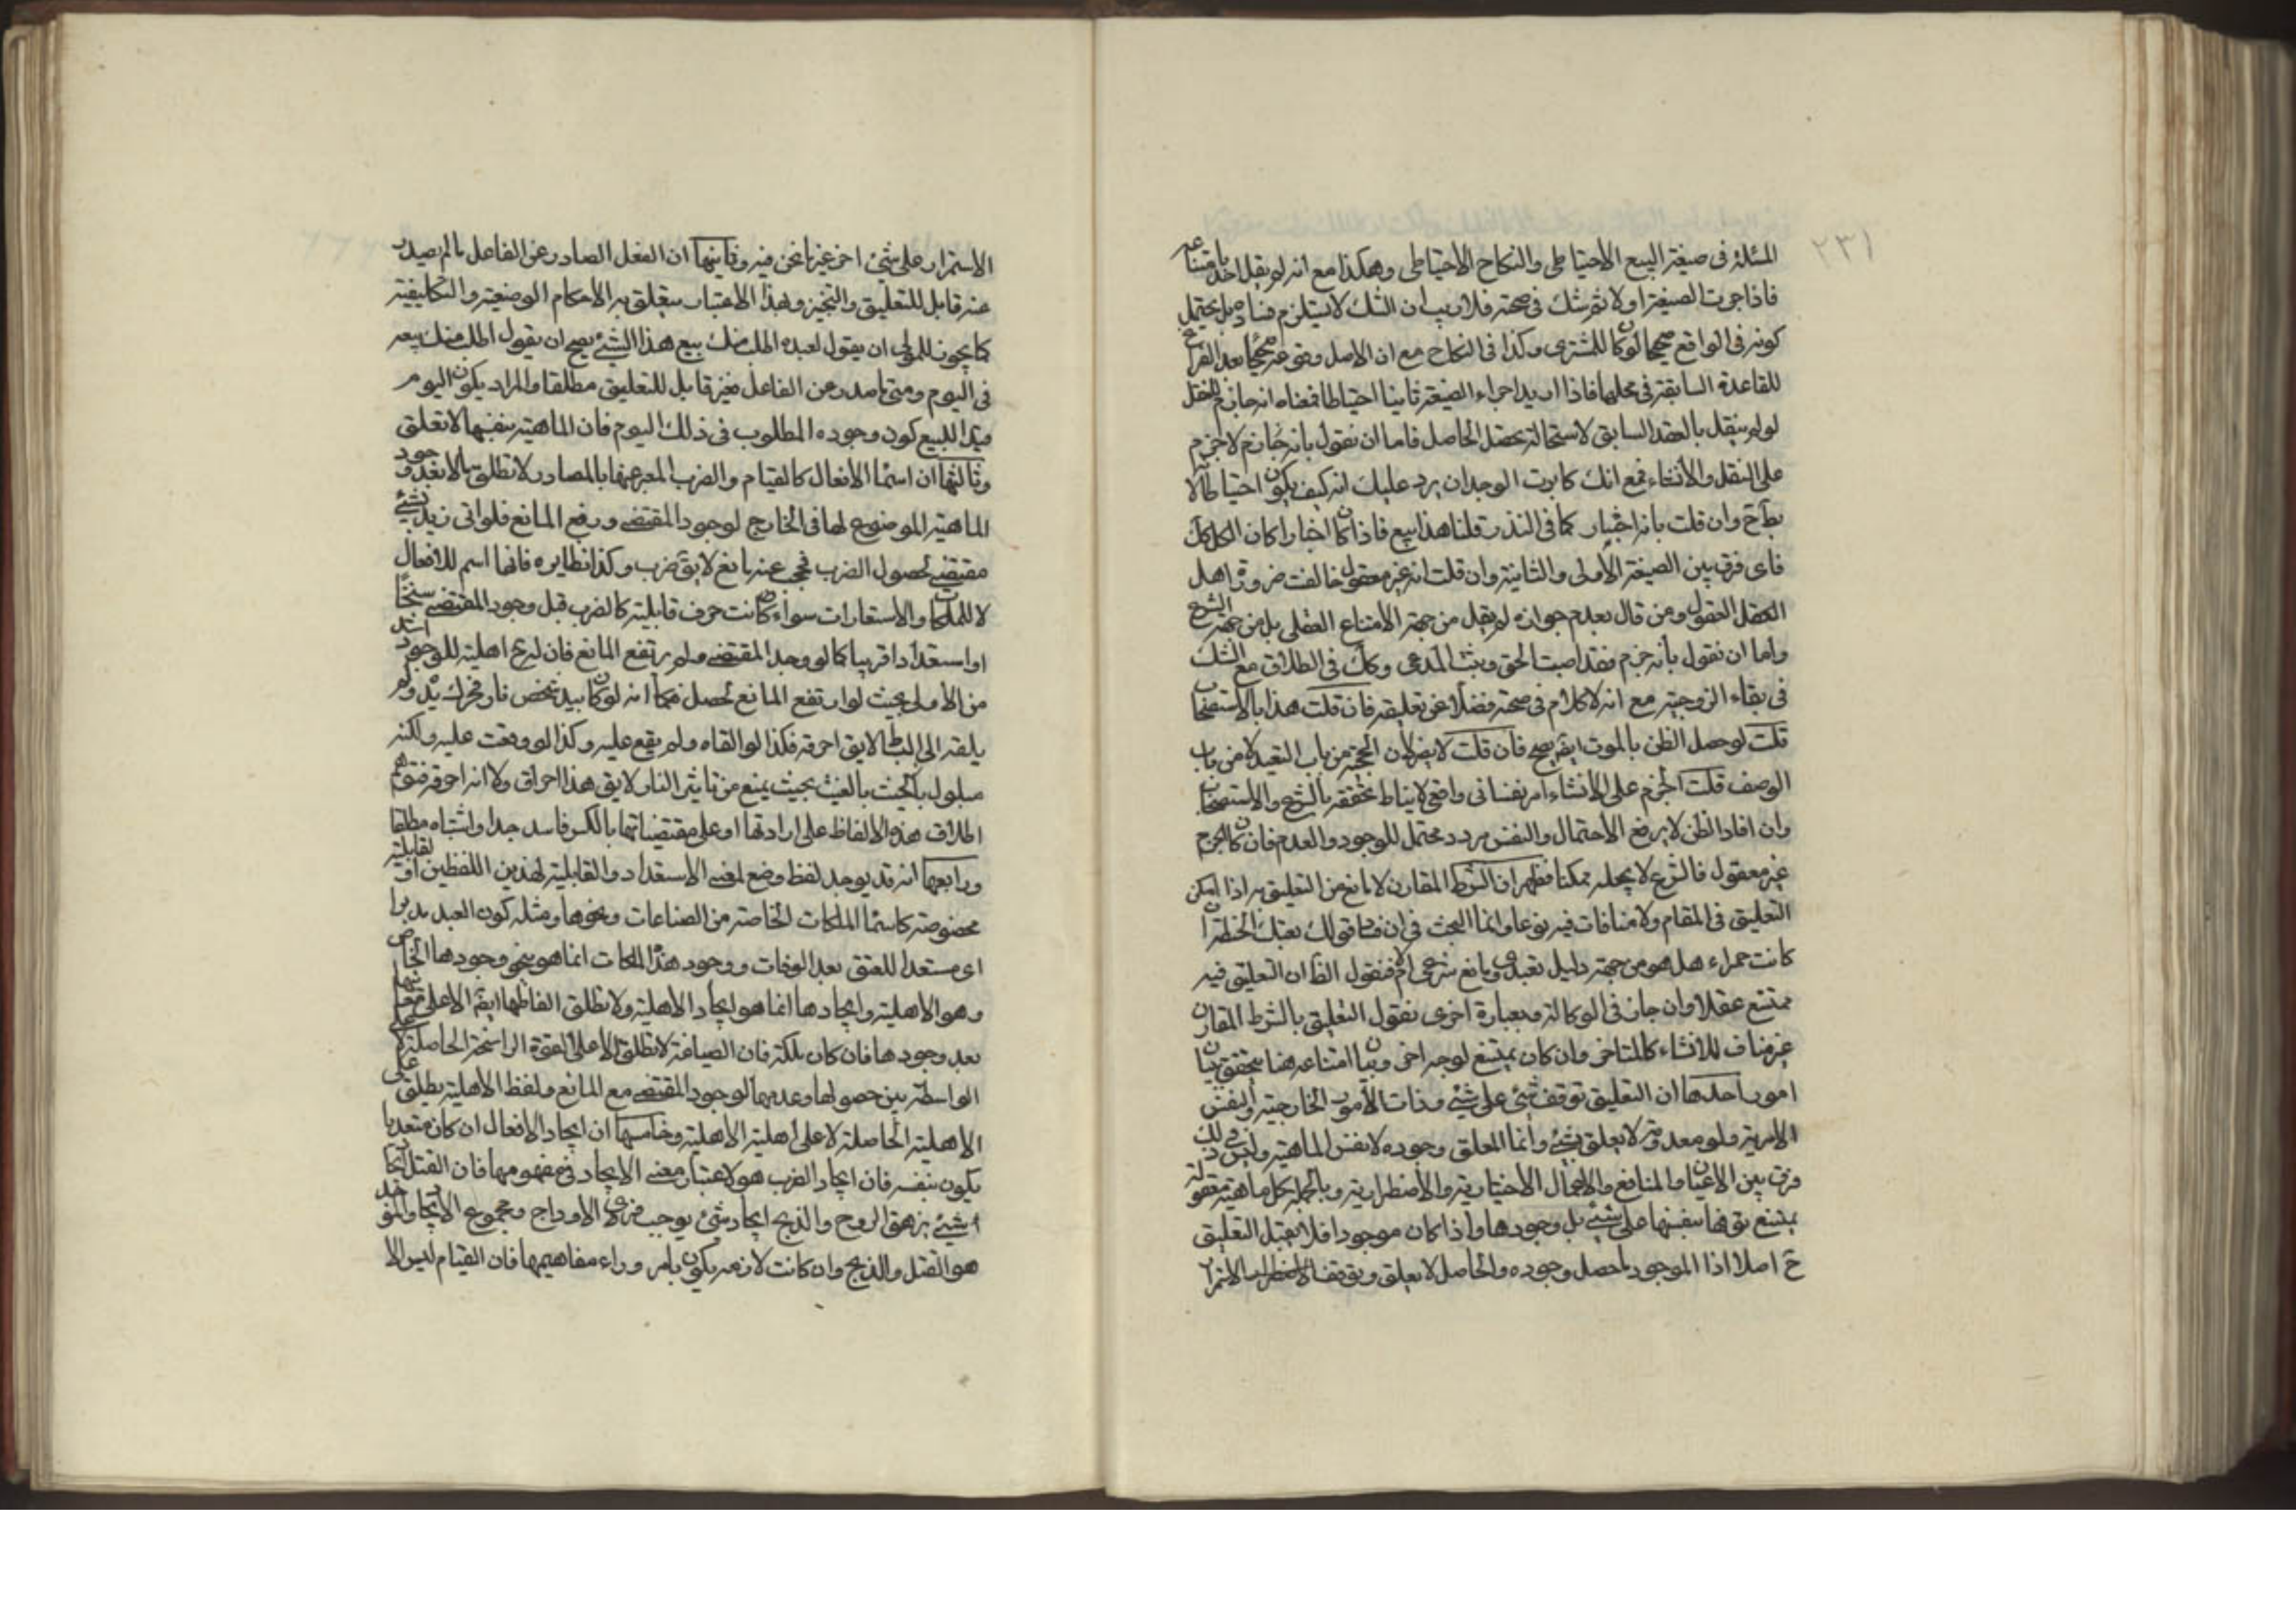 ٢٣١
المسئلة فى صيغة البيع الاحتياطى والنكاح الاحتياطى وهكذا مع انه لم يقل احد بامتناعه
فاذا جرت الصيغة اولا ثم شك فى صحته فلا ريب ان الشك لا يستلزم فساده بل يحتمل
كونه فى الواقع صحيحا لو كان للمشترى وكذا فى النكاح مع ان الاصل وقوعه صحيحا بعد الفراغ
للقاعدة السابقة فى محلها فاذا اريد اجراء الصيغة ثانيا احتياطا فمعناه انه جازم للنقل
لو لم ينقل بالعقد السابق لاستحالة تحصيل الحاصل فاما ان نقول بانه جازم لا جزم
على النقل والانشاء فمع انك كابرت الوجدان يرد عليك انه كيف يكون احتياطا لانه
بط ح وان قلت بانه اخبار كما فى النذر قلنا هذا بيع فاذا كان اخبارا كان الكل كك
فاى فرق بين الصيغة الاولى والثانية وان قلت انه غير معقول خالفت ضرورة اهل
العقل العقول ومن قال بعدم جوازه لم يقل من جهة الامتناع العقلى بل من جهة الشرع
واما ان نقول بانه جزم فقد اصبت الحق وثبت المدعى وكك فى الطلاق مع الشك
فى بقاء الزوجية مع انه لا كلام فى صحته فضلا عن تعليقه فان قلت هذا بالاستصحاب
قلت لو حصل الظن بالموت ايضا يصح فان قلت لا يضر لان الحجة من باب التعبد لا من باب
الوصف قلت الجزم على الانشاء امر نفسانى واقعى لا يناط تحققه بالشرع والاستصحاب
وان افاد الظن لا يرفع الاحتمال والنفس مردد محتمل للوجود والعدم فان كان الجزم
غير معقول فالشرع لا يجعله ممكنا فظهر ان الشرط المقارن لا مانع من التعليق به اذا امكن
التعليق فى المقام ولا منافات فيه نوعا وانما البحث فى ان فساد قولك بعتك الحنطة ان
كانت حمراء هل هو من جهة دليل تعبدى ومانع شرعى ام لا فنقول الظ ان التعليق فيه
ممتنع عقلا وان جاز فى الوكالة وبعبارة اخرى نقول التعليق بالشرط المقارن
غير مناف للانشاء كالمتاخر وان كان يمتنع لوجه اخر وبيان امتناعه هنا يتحقق ببيان
امور احدها ان التعليق توقف شئ على شئ وذات الامور الخارجية والنفس
الامرية ولو معدومة لا يعلق بشئ وانما المعلق وجوده لا نفس الماهية وليس فى ذلك
فرق بين الاعيان والمنافع والافعال الاختيارية والاضطرارية وبالجملة كل ماهية معقولة
يمتنع توقفها بنفسها على شئ بل وجودها واذا كان موجودا فلا يقبل التعليق
ح اصلا اذا الموجود ما حصل وجوده والحاصل لا يعلق وتوقف الاضطراب الاستمرار
الاستمرار على شئ اخر غير ما نحن فيه وثانيها ان الفعل الصادر عن الفاعل ما لم يصدر
عنه قابل للتعليق والتنجيز وبهذا الاعتبار يتعلق به الاحكام الوضعية والتكليفية
كما يجوز للمولى ان يقول لعبده اطلب منك بيع هذا الشئ يصح ان يقول اطلب منك بيعه
فى اليوم ومتى ما صدر عن الفاعل فغير قابل للتعليق مطلقا والمراد بكون اليوم
قيدا للبيع كون وجوده المطلوب فى ذلك اليوم فان الماهية بنفسها لا تعلق
وثالثها ان اسماء الافعال كالقيام والضرب المعبر عنها بالمصادر لا تطلق الا بعد وجود
الماهية الموضوع لها فى الخارج لوجود المقتضى ورفع المانع فلو اتى زيد بشئ
مقتضى لحصول الضرب فحجب عنه مانع لا يق ضرب وكذا نظايره فانها اسم للافعال
لا للملكات والاستعدادات سواء كانت صرف قابلية كالضرب قبل وجود المقتضى سنخا
او استعدادا قريبا كما لو وجد المقتضى ولم يرتفع المانع فان له ح اهلية للوجود اشد
من الاولى بحيث لو ارتفع المانع لحصل فكما انه لو كان بيد شخص نار فحرك يده ولم
يلقه الى البساط لا يق احرقه فكذا لو القاه ولم يقع عليه وكذا لو وقعت عليه ولكنه
مبلول بالخبث بالغيث بحيث يمنع من تاثير النار لا يق هذا احراق ولا انه احرقه فتوهم
اطلاق هذه الالفاظ على ارادتها او على مقتضياتها بالكس فاسد جدا واشتباه مطلقا
ورابعها انه قد يوجد لفظ وضع لمعنى الاستعداد والقابلية لهذين اللفظين او لقابلية
مخصوصة كاسماء الملكات الخاصة من الصناعات ونحوها ومثله كون العبد مدبرا
اى مستعدا للعتق بعد الوفات ووجود هذه الملكات انما هو بنحو وجودها الخاص
وهو الاهلية وايجادها انما هو ايجاد الاهلية ولا تطلق الفاظها ايضا الا على
بعد وجودها فان كان ملكة فان الصياغة لا تطلق الا على القوة الراسخة الحاصلة لا على
الواسطة بين حصولها وعدمها لوجود المقتضى مع المانع ولفظ الاهلية يطلق على
الاهلية الحاصلة لا على اهلية الاهلية وخامسها ان ايجاد الافعال ان كان متعديا
يكون بنفسه فان ايجاد الضرب هو لاعتبار معنى الايجاد فى مفهومها فان القتل ايجاد
شئ يزهق الروح والذبح ايجاد شئ يوجب فرى الاوداج ومجموع الايجاد والقيد
هو القتل والذبح وان كانت لازمة يكون بامر وراء مفاهيمها فان القيام ليس الا